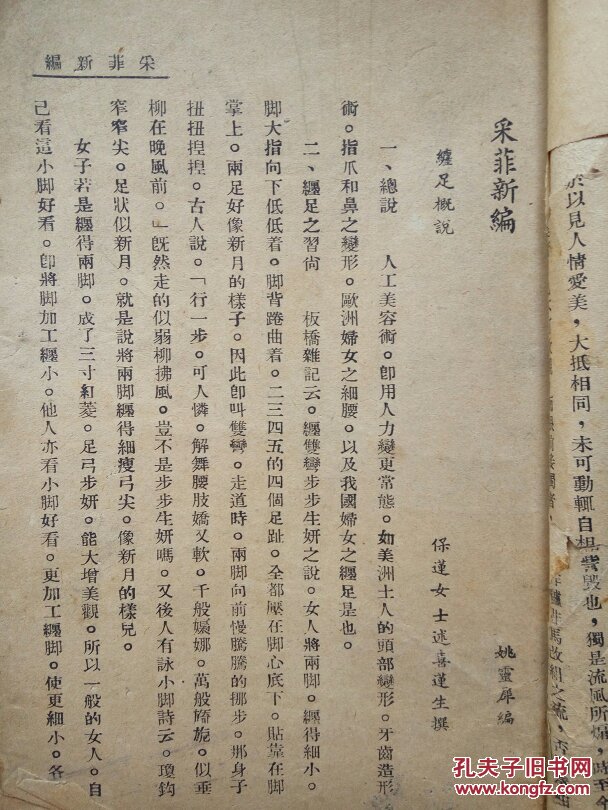 於以見人情愛美，大抵相同，未可動輒自相訾毀也，獨是流風所煽，
采菲新編
姚靈犀編
纏足概說
保蓮女士述喜蓮生撰
一、總說　人工美容術。卽用人力變更常態。如美洲土人的頭部變形。牙齒造形
術。指爪和鼻之變形。歐洲婦女之細腰。以及我國婦女之纏足是也。
二、纏足之習尙　板橋雜記云。纏雙彎步步生妍之說。女人將兩脚。纏得細小。
脚大指向下低低着。脚背踡曲着。二三四五的四個足趾。全都壓在脚心底下。貼靠在脚
掌上。兩足好像新月的樣子。因此卽叫雙彎。走道時。兩脚向前慢騰騰的挪步。那身子
扭扭揑揑。古人說。「行一步。可人憐。解舞腰肢嬌又軟。千般嬝娜。萬般旖旎。似垂
柳在晚風前。」旣然走的似弱柳拂風。豈不是步步生妍嗎。又後人有詠小脚詩云。瓊鈎
窄窄尖。足狀似新月。就是說將兩脚纏得細瘦弓尖。像新月的樣兒。
女子若是纏得兩脚。成了三寸紅菱。足弓步妍。能大增美觀。所以一般的女人。自
己看這小脚好看。卽將脚加工纏小。他人亦看小脚好看。更加工纏脚。使更細小。各
采菲新編
孔夫子旧书网
www.kongfz.com